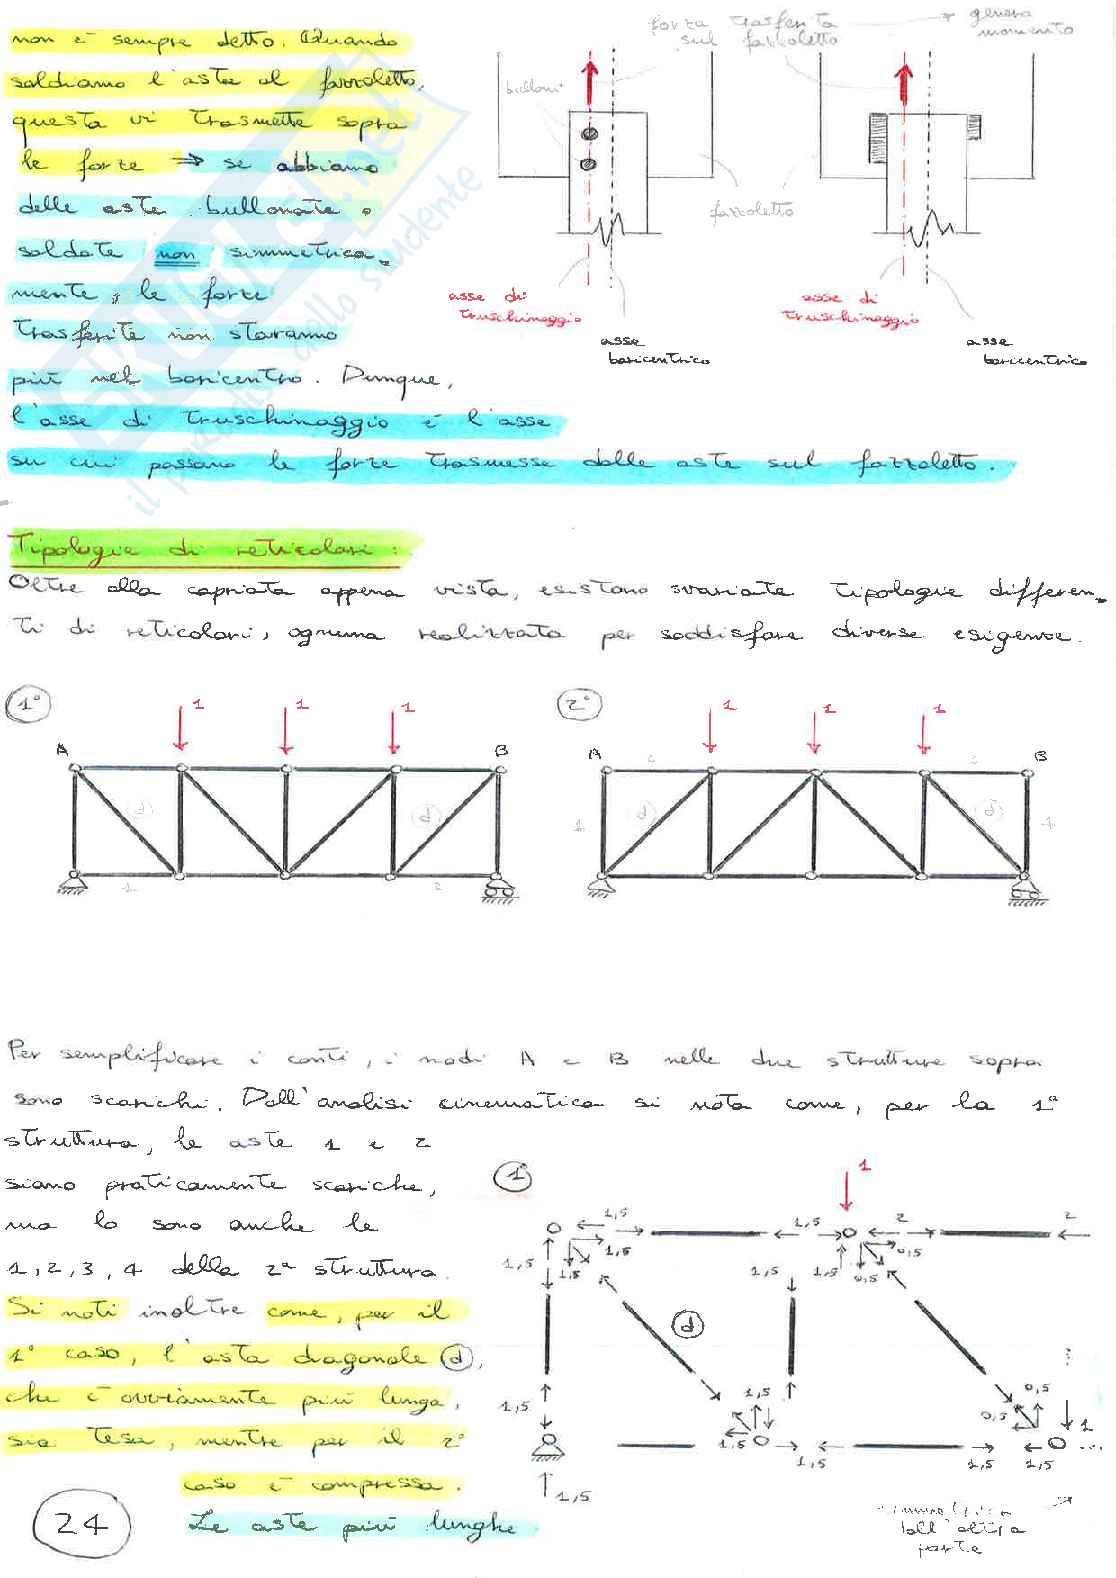 non è sempre detto. Quando
saldiamo l'asta al fazzoletto,
questa vi trasmette sopra
le forze ⇒ se abbiamo
delle aste bullonate o
saldate non simmetrica-
mente, le forze
trasferite non staranno
più nel baricentro. Dunque,
l'asse di truschinaggio è l'asse
su cui passano le forze trasmesse dalle aste sul fazzoletto.
forza trasferita
sul fazzoletto
→ genera
momento
bulloni
fazzoletto
asse di
truschinaggio
asse
baricentrico
asse di
truschinaggio
asse
baricentrico
SKUOLA.net
il portale dello studente
Tipologie di reticolari:
Oltre alla capriata appena vista, esistono svariate tipologie differen-
ti di reticolari, ognuna realizzata per soddisfare diverse esigenze.
1°
1 1 1
A B
(d) (d)
1 2
2°
1 1 1
A B
2 3
1 (d) (d) 4
Per semplificare i conti, i nodi A e B nelle due strutture sopra
sono scarichi. Dall'analisi cinematica si nota come, per la 1ª
struttura, le aste 1 e 2
siano praticamente scariche,
ma lo sono anche le
1, 2, 3, 4 della 2ª struttura.
Si noti inoltre come, per il
1° caso, l'asta diagonale (d),
che è ovviamente più lunga,
sia tesa, mentre per il 2°
caso è compressa.
Le aste più lunghe
1
1
1,5 1,5 2 2
1,5 1,5 1,5 1,5 1,5 0,5 0,5
d
1,5 1,5 0,5 0,5 1
1,5 1,5 1,5 1,5 ...
1,5
simmetrica
dall'altra
parte
24